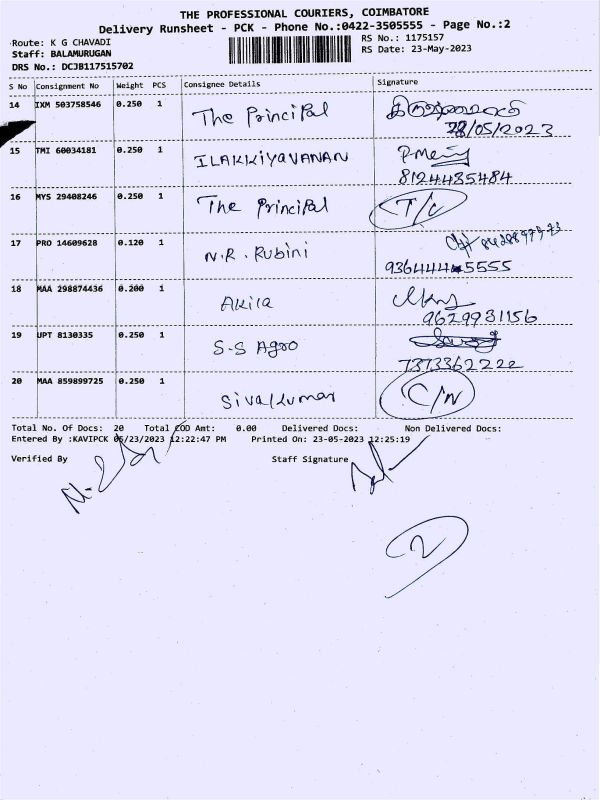 THE PROFESSIONAL COURIERS, COIMBATORE
Delivery Runsheet - PCK - Phone No.:0422-3505555 - Page No.:2
Route: K G CHAVADI
RS No.: 1175157
Staff: BALAMURUGAN
RS Date: 23-May-2023
DRS No.: DCJB117515702
S No Consignment No Weight PCS Consignee Details Signature
14 IXM 503758546 0.250 1 The Principal
/05/2023
15 TMI 60034181 0.250 1 ILAKKIYAVANAN
8124435484
16 MYS 29408246 0.250 1 The Principal
17 PRO 14609628 0.120 1 N.R. Rubini
936444 5555
18 MAA 298874436 0.200 1 Akila
9629931156
19 UPT 8130335 0.250 1 S-S Agro
7373362222
20 MAA 859899725 0.250 1 Sivakumar C/N
Total No. Of Docs: 20 Total COD Amt: 0.00 Delivered Docs: Non Delivered Docs:
Entered By :KAVIPCK 05/23/2023 12:22:47 PM Printed On: 23-05-2023 12:25:19
Verified By Staff Signature
2